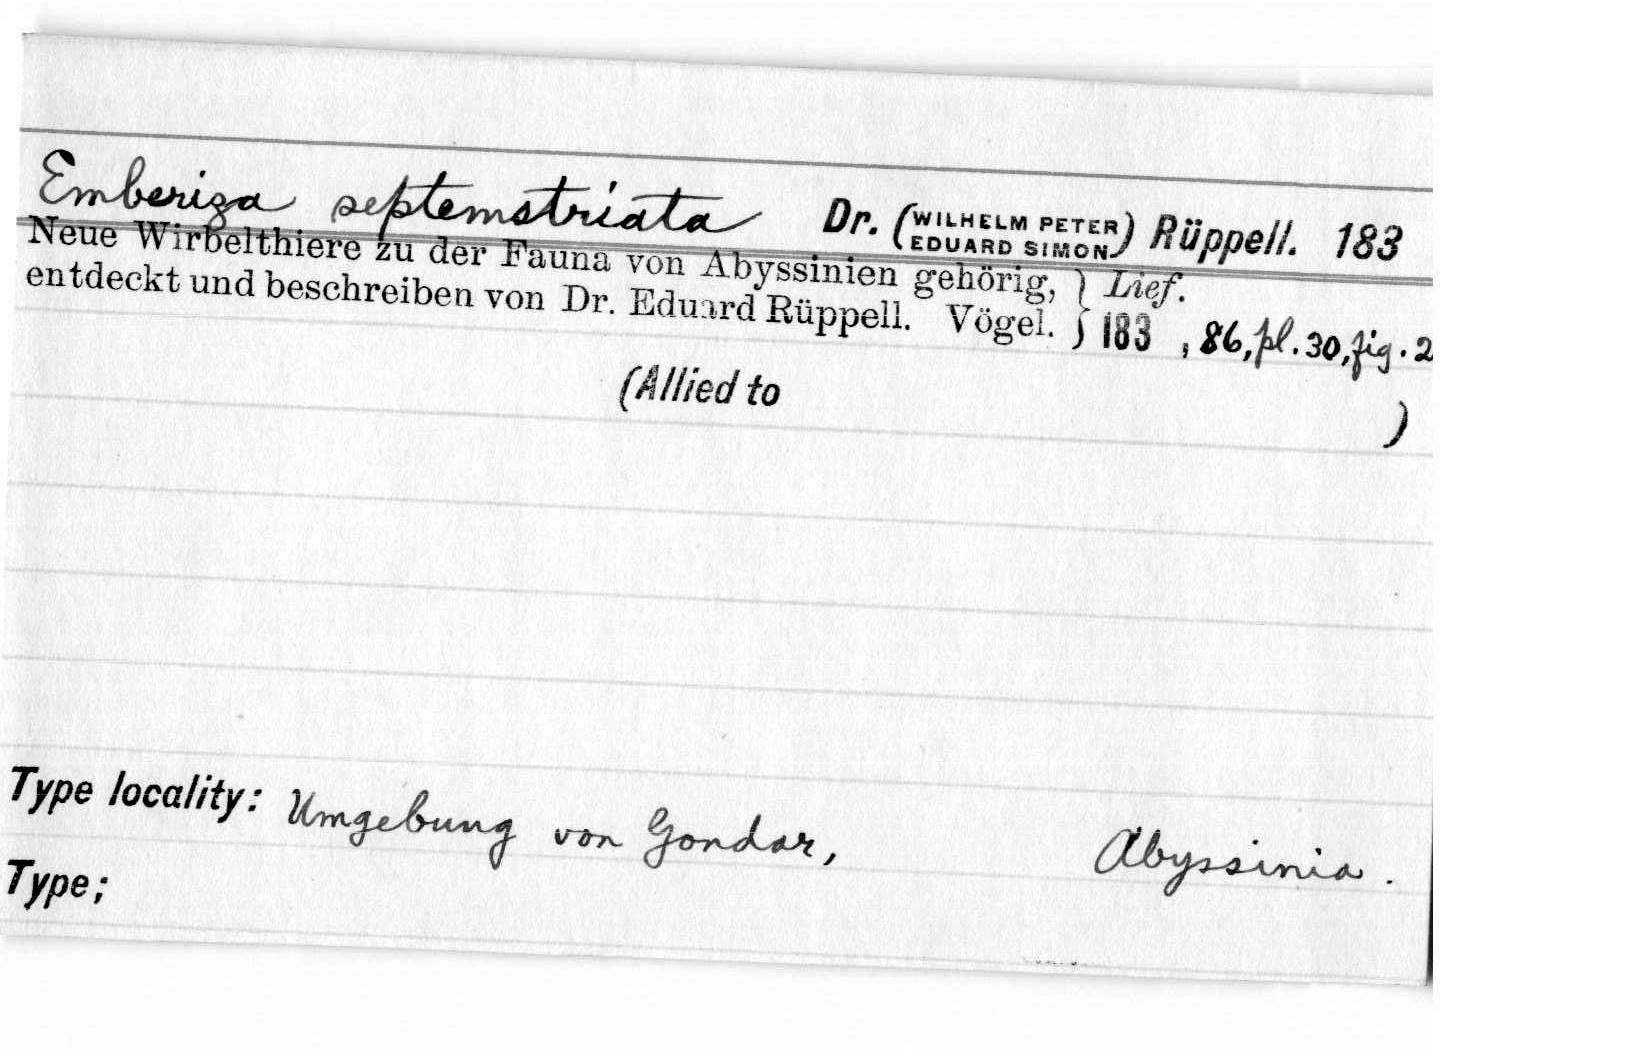 Emberiza septemstriata Dr. (WILHELM PETER EDUARD SIMON) Rüppell. 183
Neue Wirbelthiere zu der Fauna von Abyssinien gehörig, } Lief.
entdeckt und beschreiben von Dr. Eduard Rüppell. Vögel. } 183 , 86, pl. 30, fig. 2
(Allied to )
Type locality: Umgebung von Gondar, Abyssinia.
Type;